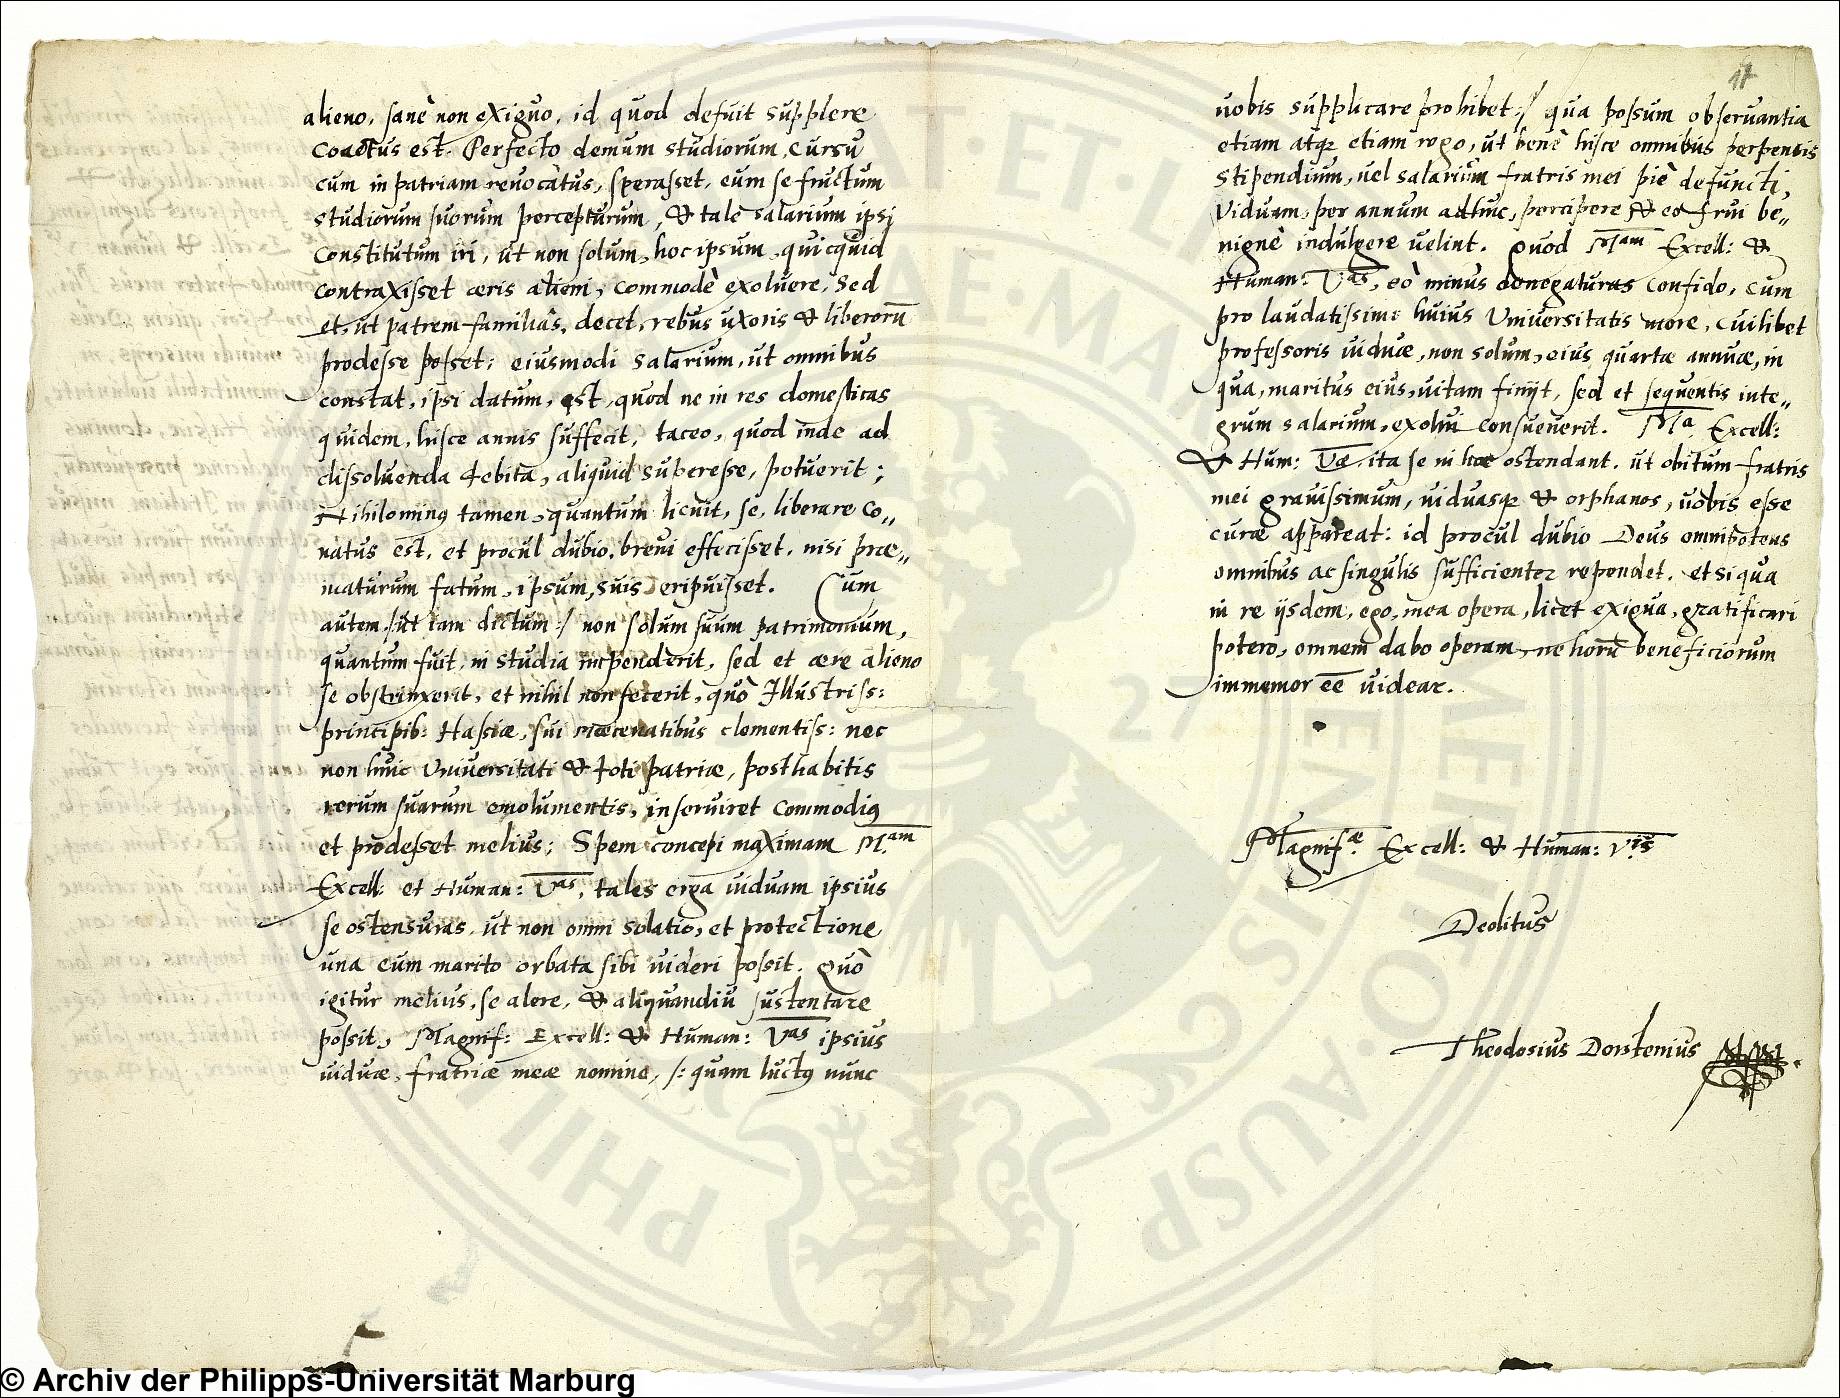 alieno, sanè non exiguo, id quod defuit supplere
coactus est. Perfecto demum studiorum, cursu
cum in patriam revocatus, sperasset, eum se fructum
studiorum suorum percepturum, & tale salarium ipsi
constitutum iri, ut non solum, hoc ipsum, quicquid
contraxisset aeris alieni, commodè exoluere, sed
et, ut patrem-familiâs, decet, rebus uxoris & liberorū
prodesse posset; eiusmodi salarium, ut omnibus
constat, ipsi datum, est, quod ne in res domesticas
quidem, hisce annis suffecit, taceo, quod inde ad
dissoluenda debita, aliquid superesse, potuerit;
Nihilominus tamen, quantum licuit, se, liberare co„
natus est, et procul dubio, breui effecisset, nisi prae„
maturum fatum, ipsum, suis eripuisset. Cum
autem /:ut iam dictum:/ non solum suum patrimonium,
quantum fuit, in studia impenderit, sed et aere alieno
se obstrinxerit, et nihil non fecerit, quò Illustriss:
principib: Hassiae, sui maecenatibus clementiss: nec
non huic Universitati & toti patriae, posthabitis
rerum suarum emolumentis, inseruiret commodius
et prodesset melius; Spem concepi maximam M.am
Excell: et Human: Vas, tales erga uiduam ipsius
se ostensuras, ut non omni solatio, et protectione
una cum marito orbata sibi uideri possit. Quò
igitur melius, se alere, & aliquandiu sustentare
possit, Magnif: Excell: & Human: Vas ipsius
uiduae, fratriae meae nomine, /: quam luctus nunc
17
uobis supplicare prohibet:/ qua possum obseruantia
etiam atque etiam rogo, ut benè hisce omnibus perpensis
stipendium, uel salarium fratris mei piè defuncti,
Viduam, per annum adhuc, percipere & eo frui be„
nignè indulgere uelint. Quod Mam Excell: &
Human: Vas, eò minus denegaturas confido, cum
pro laudatissimi huius Universitatis more, cuilibet
professoris uiduae, non solum, eius quartae annuae, in
qua, maritus eius, uitam finijt, sed et sequentis inte„
grum salarium, exolui consueuerit. Ma Excell:
& Hum: Vae ita se in hoc ostendant, ut obitum fratris
mei grauissimum, uiduasque & orphanos, uobis esse
curae appareat: id procul dubio Deus omnipotens
omnibus ac singulis sufficienter rependet, et si qua
in re ijsdem, ego, mea opera, licet exigua, gratificari
potero, omnem dabo operam, ne horū beneficiorum
immemor ēē uidear.
Magnif.ae Excell: & Human: V.is
Deditus
Theodosius Dorstenius
© Archiv der Philipps-Universität Marburg